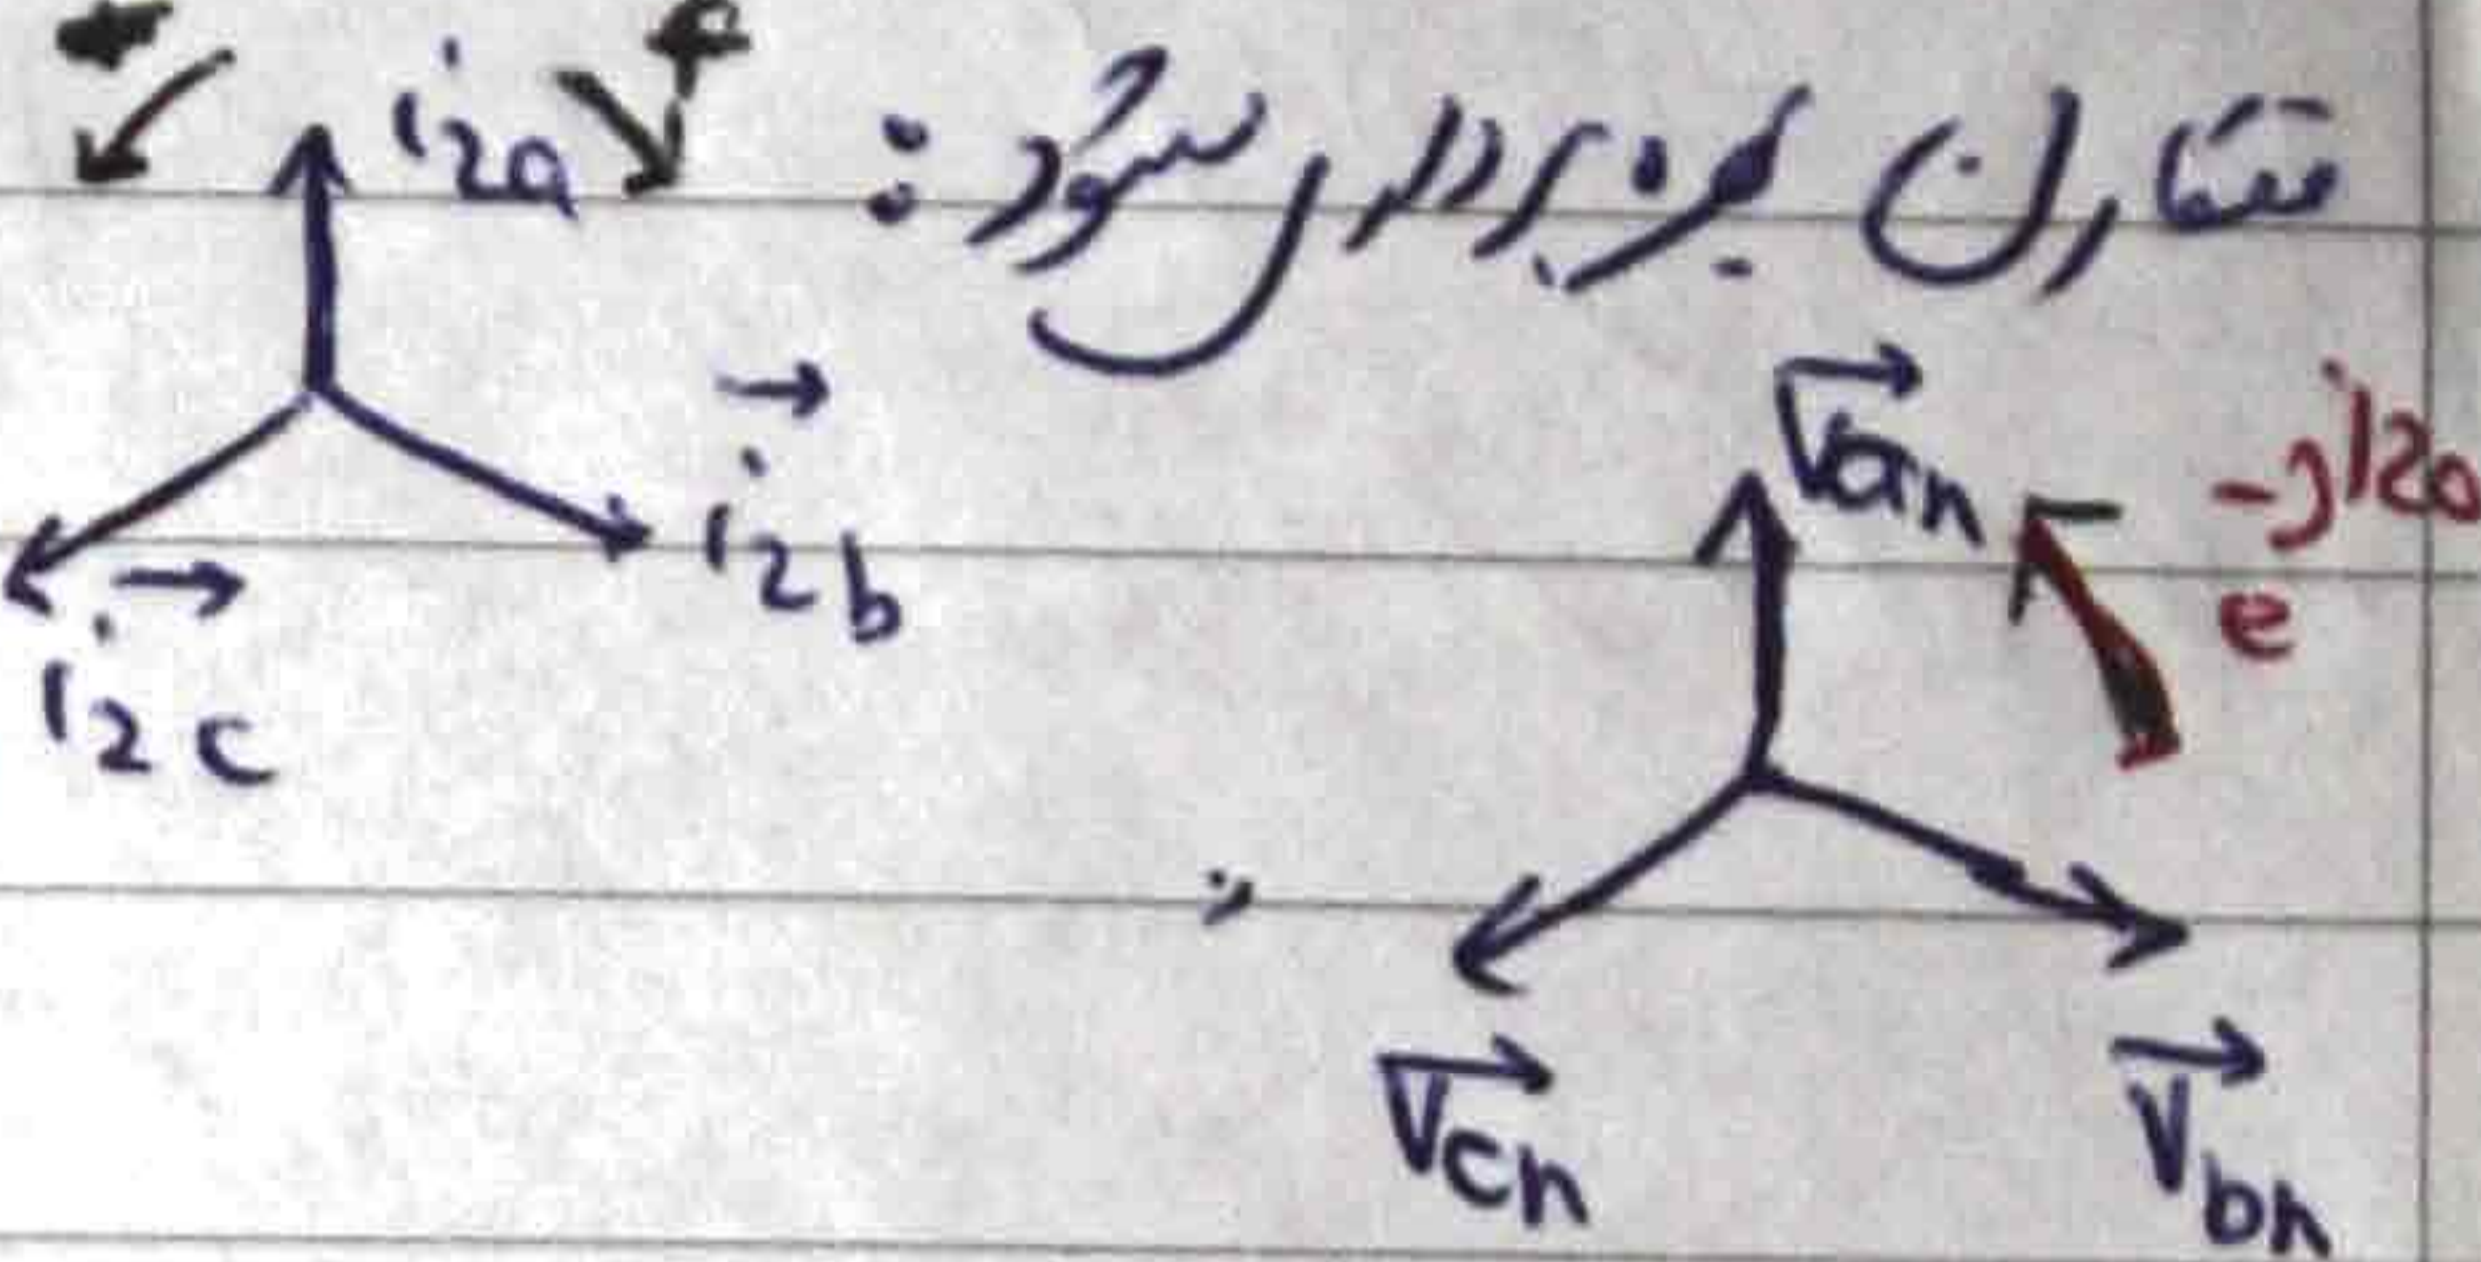 متقارن برخوردار شود :
i2a
i2b
i2c
Van
e -j120
Vcn
Vbn